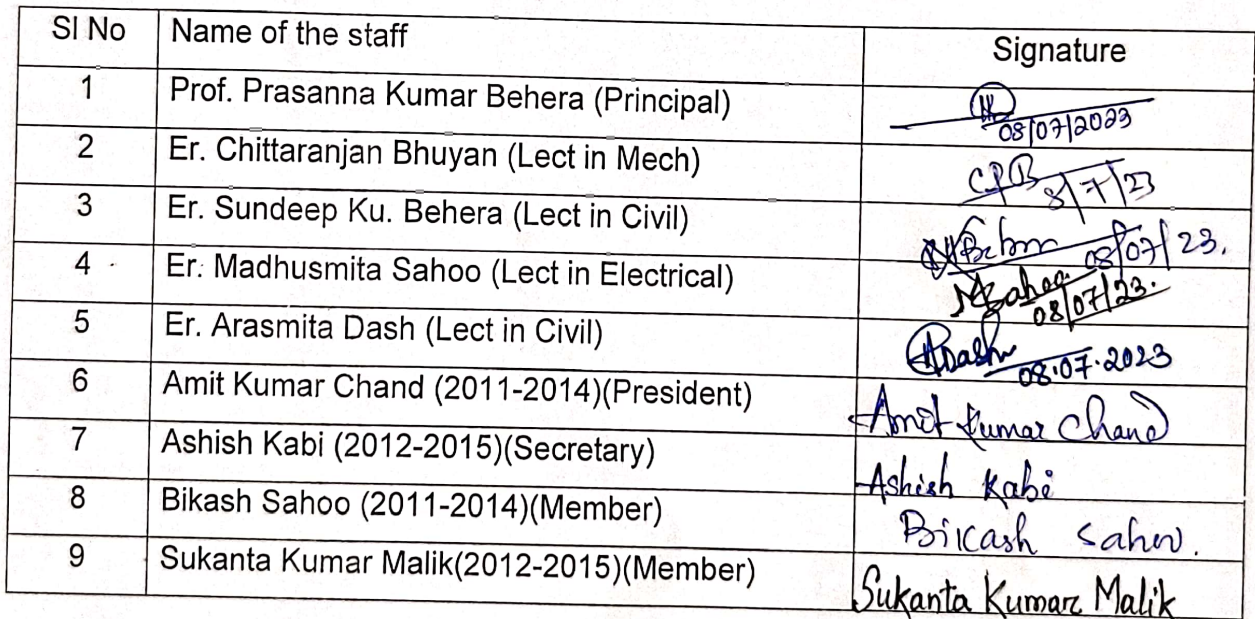 Sl No Name of the staff Signature
1 Prof. Prasanna Kumar Behera (Principal) 08/07/2023
2 Er. Chittaranjan Bhuyan (Lect in Mech) 8/7/23
3 Er. Sundeep Ku. Behera (Lect in Civil) 08/07/23.
4 Er. Madhusmita Sahoo (Lect in Electrical) MSahoo 08/07/23.
5 Er. Arasmita Dash (Lect in Civil) ADash 08.07.2023
6 Amit Kumar Chand (2011-2014)(President) Amit Kumar Chand
7 Ashish Kabi (2012-2015)(Secretary) Ashish Kabi
8 Bikash Sahoo (2011-2014)(Member) Bikash Sahoo.
9 Sukanta Kumar Malik(2012-2015)(Member) Sukanta Kumar Malik